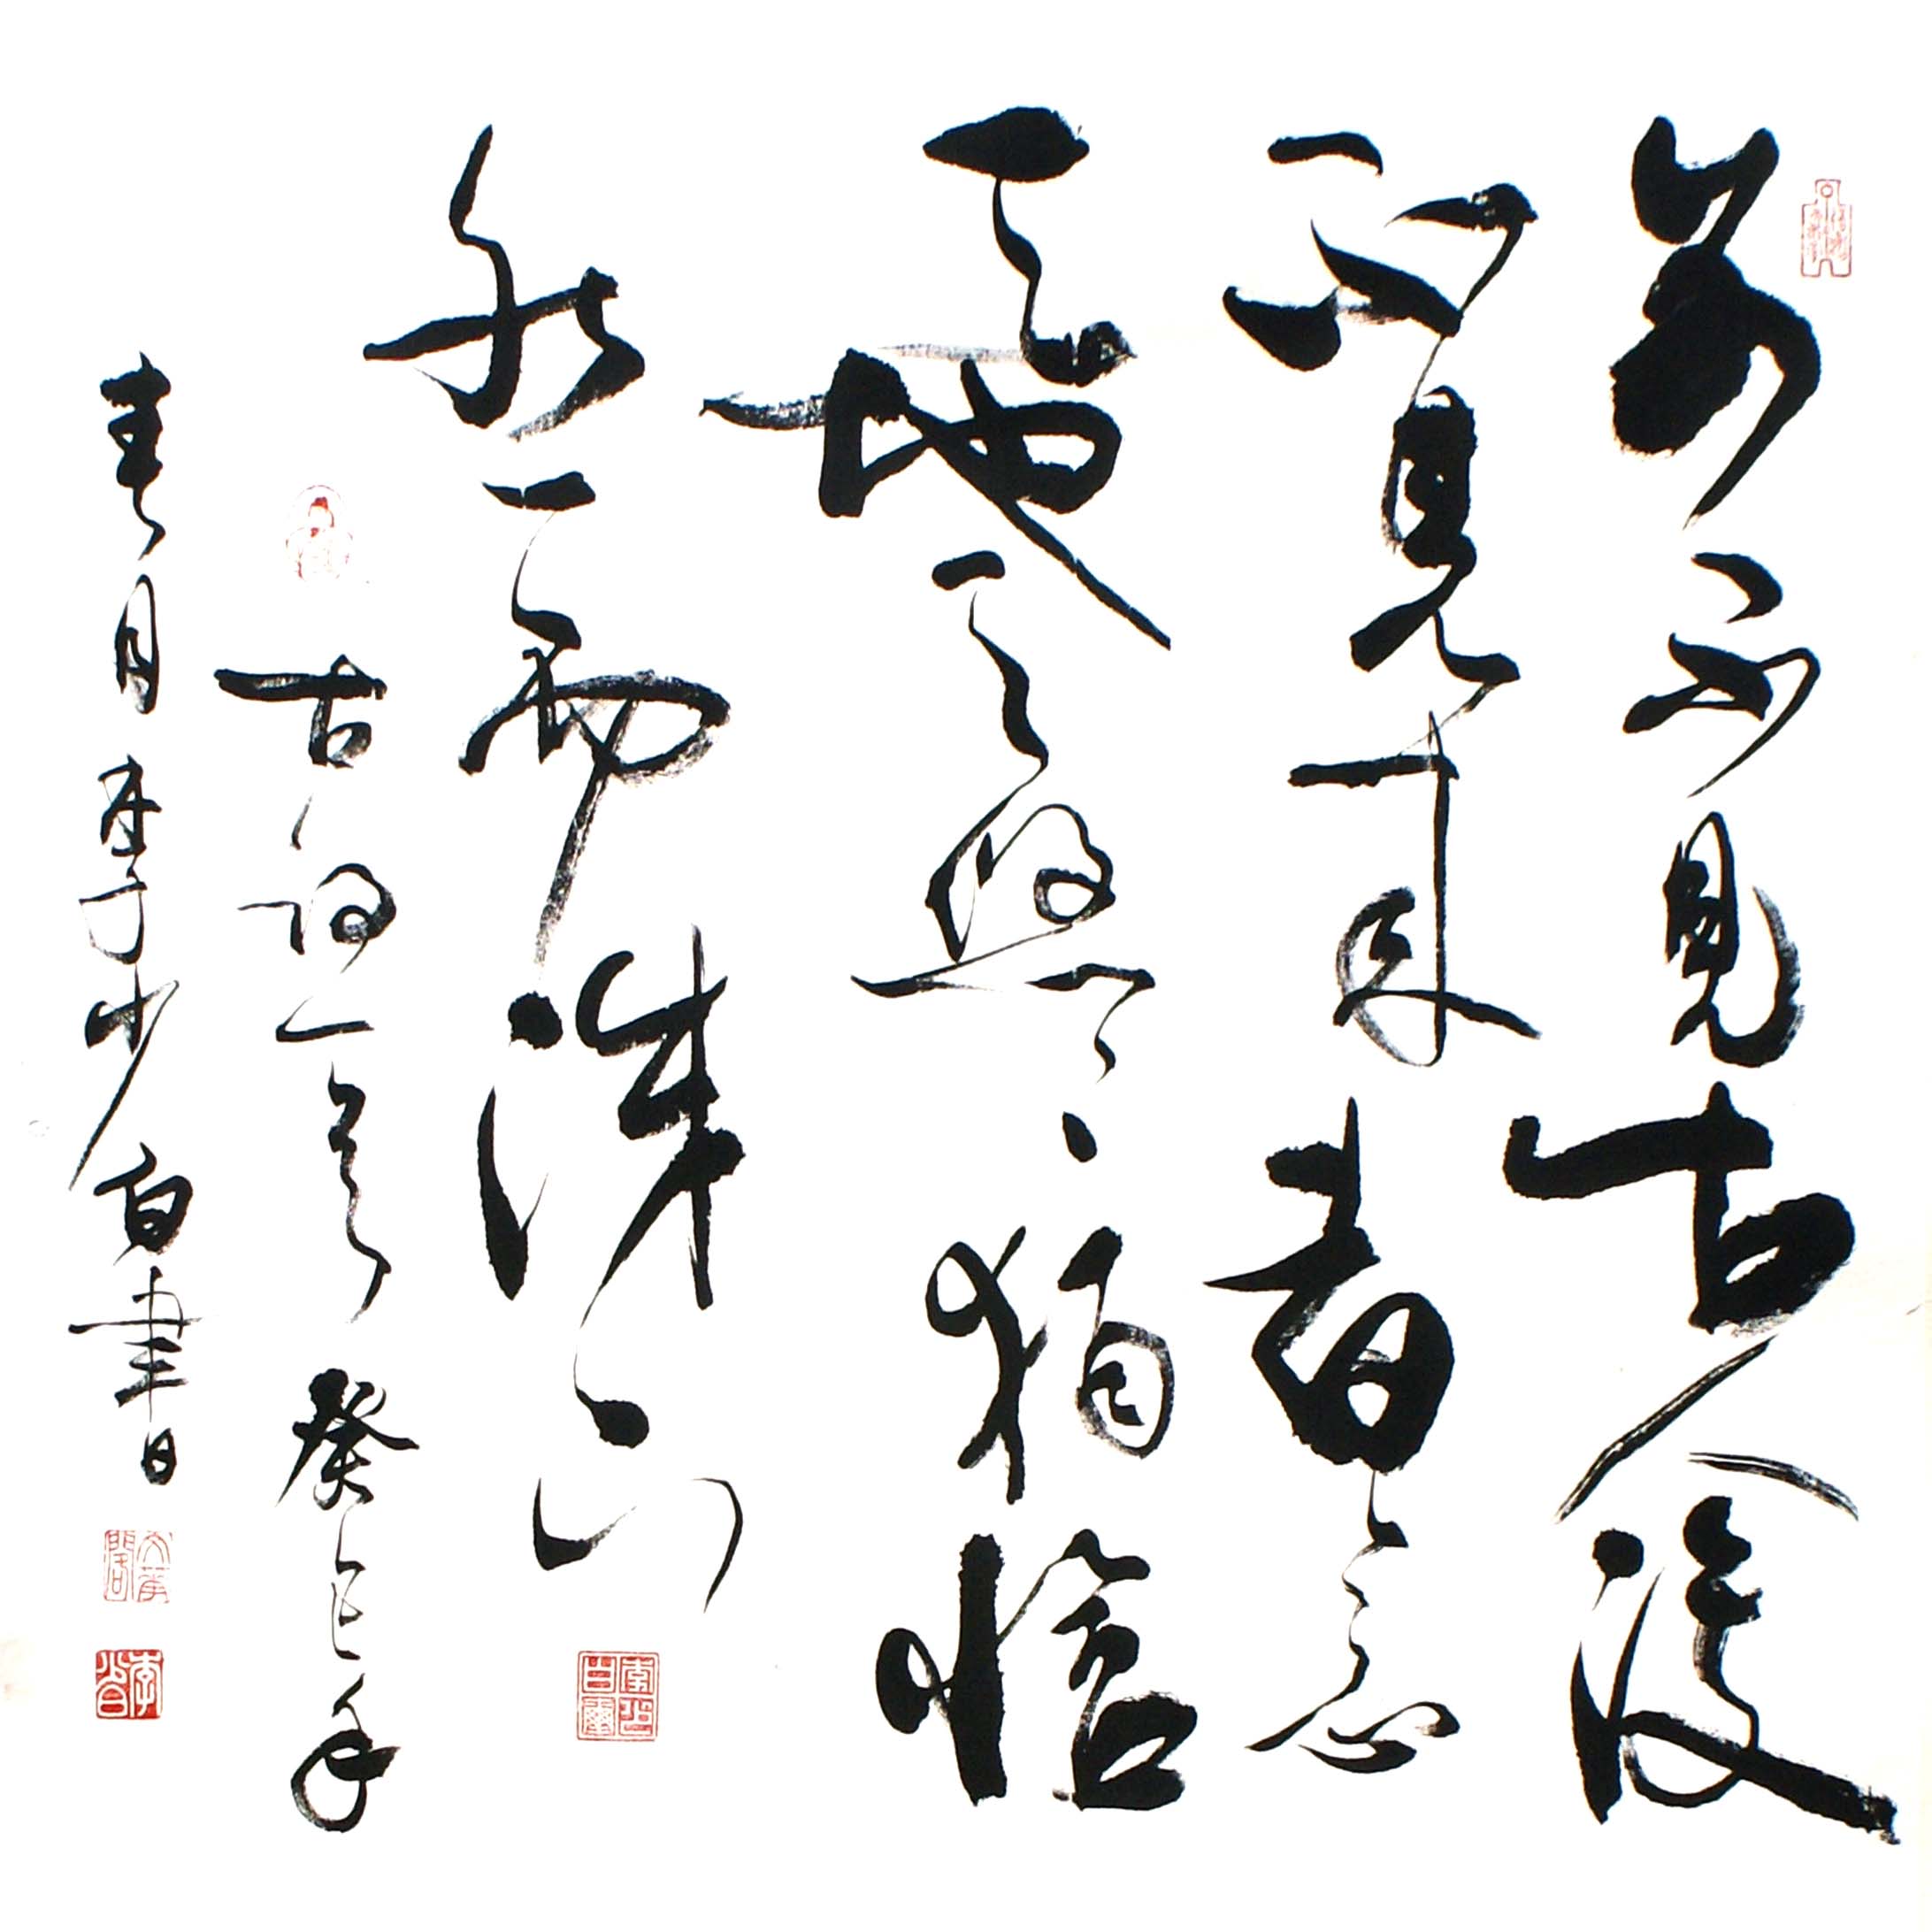 前不见古人后
不见来者念
天地之悠悠独怆
然而涕下
古诗一首癸巳年
春月李少白书